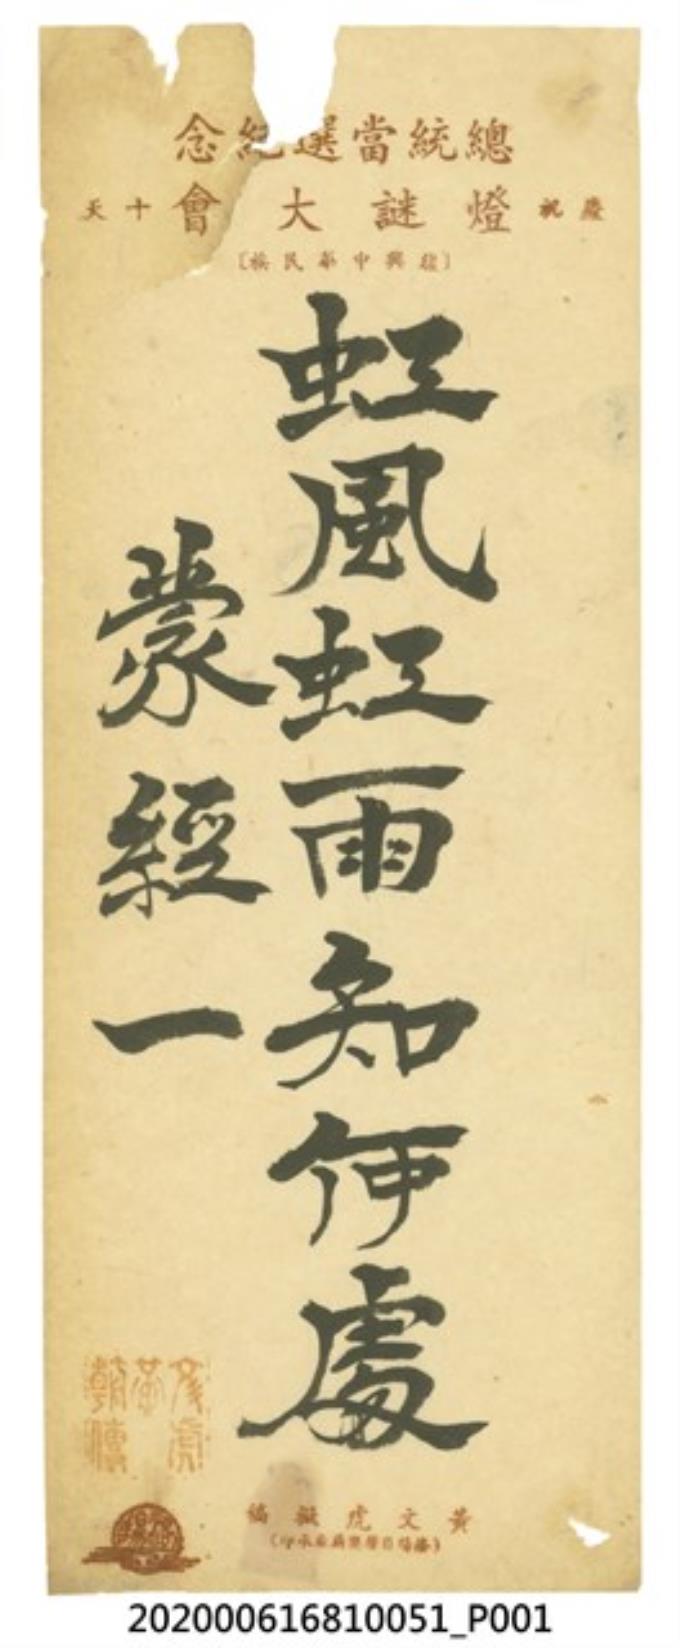 總統當選紀念
慶祝 燈謎大會 十天
興中華民族
虹風虹雨知何處
蒙經一
黃文虎擬稿
202000616810051_P001